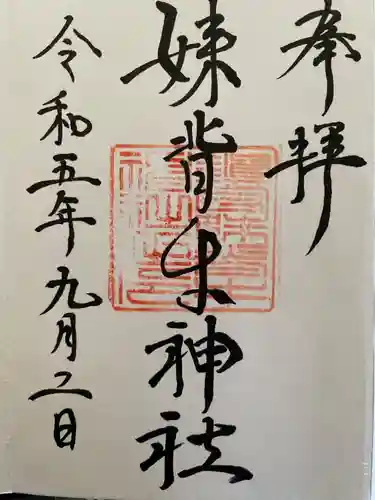 奉拝
妹背牛神社
令和五年九月二日